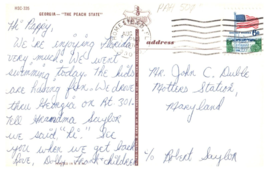 GEORGIA — "THE PEACH STATE"
Hi Pappy,
We're enjoying Florida
very much. We went
swimming today. The kids
are having fun. We drove
thru Georgia on Rt 301.
Tell Grandma Saylor
we said "hi." See
you when we get back
Love,
children
Mr. John C. Duble
Motters Station,
Maryland
c/o Robert Saylor